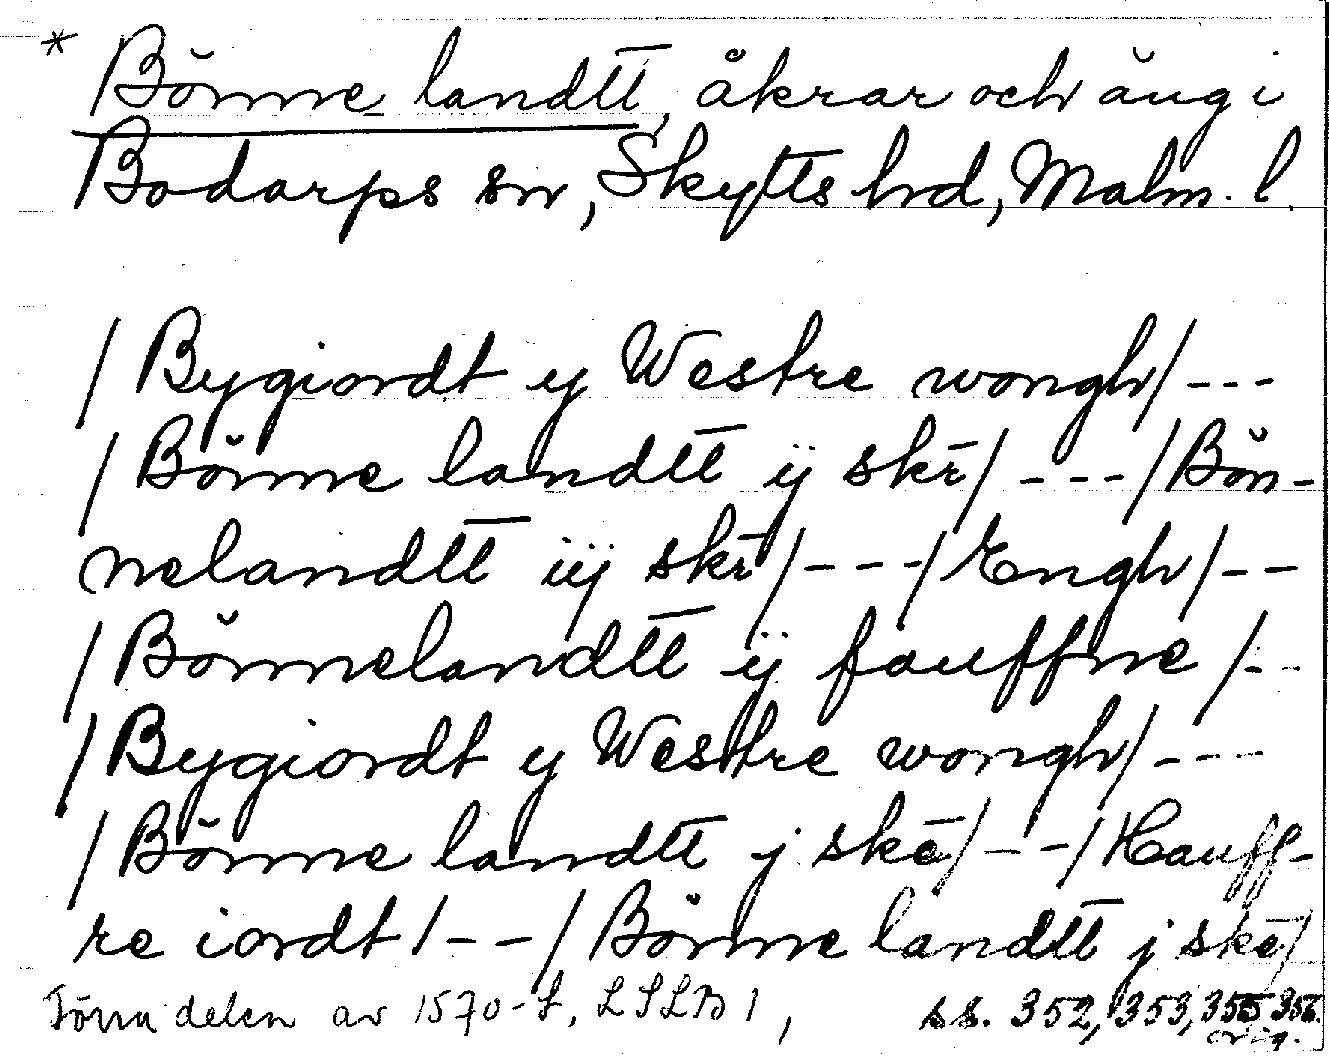 * Bönne landtt, åkrar och äng i
Bodarps sn, Skytts hd, Malm. l.
/ Bygiordt y Westre wongh/ ---
/ Bönne landtt ij skr̄/ ---/ Bön-
nelandtt iij skr̄/ ---/ Engh/ --
/ Bönnelandtt ij fauffne /--
/ Bygiordt y Westre wongh/ ---
/ Bönne landtt j skē/ --/ Hauff-
re iordt / --/ Bönne landtt j skē/
Förra delen av 1570-t, LSLB 1, ss. 352, 353, 355 356.
orig.